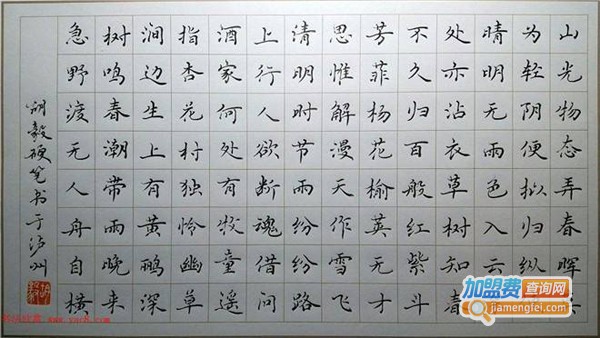 山光物态弄春晖
为轻阴便拟归纵
晴明无雨色入云
处亦沾衣草树知春
不久归百般红紫斗
芳菲杨花榆英无才
思惟解漫天作雪飞
清明时节雨纷纷路
上行人欲断魂借问
酒家何处有牧童遥
指杏花村独怜幽草
涧边生上有黄鹂深
树鸣春潮带雨晚来
急野渡无人舟自横
毅硬笔书于泸州
加盟费查询网
jiamengfei.com